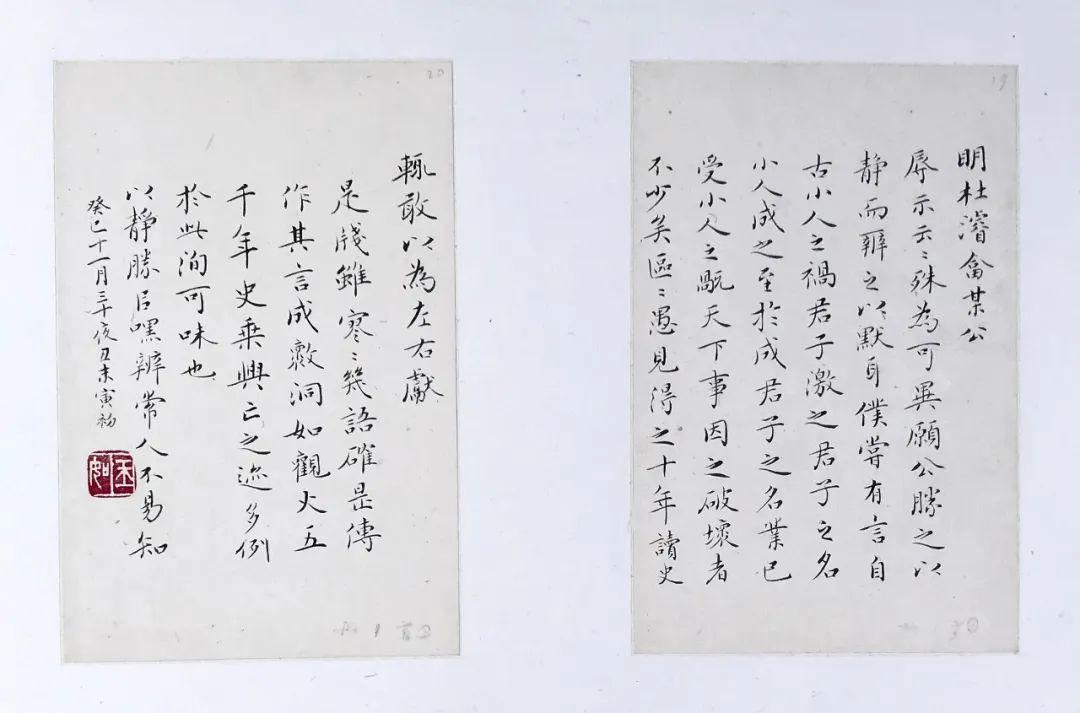 19
明杜濬畣某公
辱示云〻殊為可異願公勝之以
静而辨之以默耳僕嘗有言自
古小人之禍君子激之君子之名
小人成之至於成君子之名業已
受小人之駈天下事因之破壞者
不少矣區〻愚見得之十年讀史
20
輒敢以為左右獻
是牋雖寥〻幾語確是傳
作其言成敗洞如觀火五
千年史乗興亡之迹多例
於此洵可味也
以静勝后嘿辨常人不易知
癸巳十一月三十夜丑末寅初
玉如